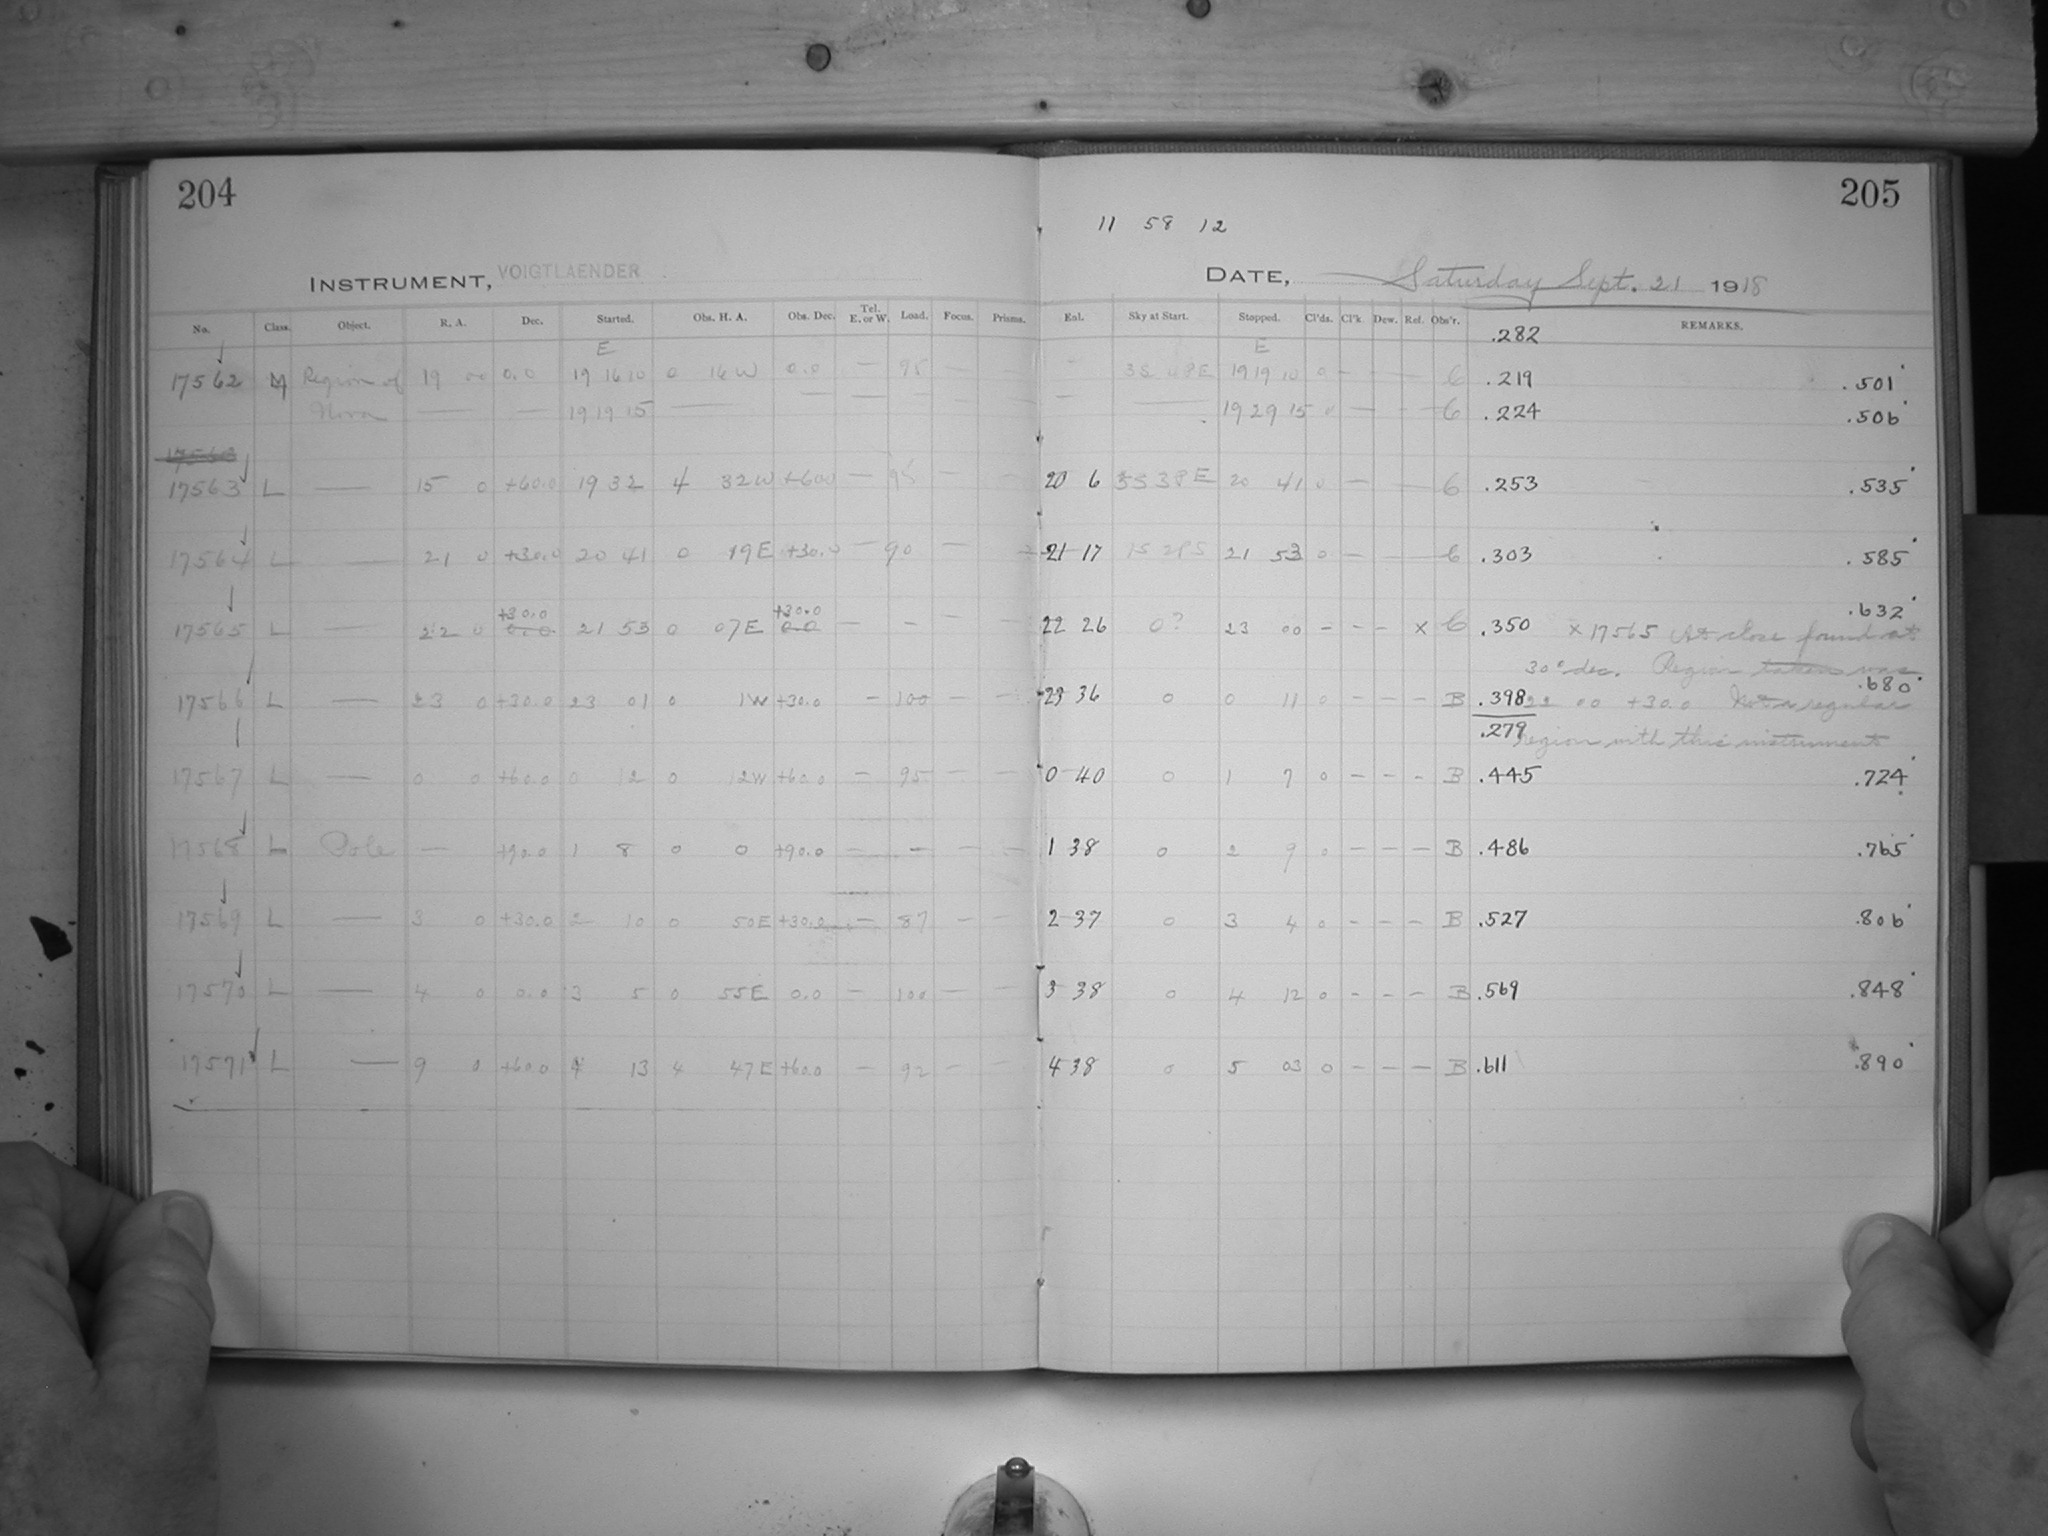 204
205
11 58 12
INSTRUMENT, VOIGTLAENDER
DATE, Saturday Sept. 21 1918
No. Class. Object. R. A. Dec. Started. Obs. H. A. Obs. Dec. Tel. E. or W. Load. Focus. Prisms. Enl. Sky at Start. Stopped. Cl'ds. Cl'k. Dew. Ref. Obs'r. REMARKS.
E E .282
17562 M Region of 19 00 0.0 19 16 10 0 16 W 0.0 — 95 — — 19 19 10 0 - - - C .219 .501
Nova — — 19 19 15 — — — — — — 19 29 15 0 — - - C .224 .506
17563
17563 L — 15 0 +60.0 19 32 4 32 W +60.0 — 95 — — 20 6 3S 3P E 20 41 0 — - - C .253 .535
17564 L — 21 0 +30.0 20 41 0 19 E +30.0 — 90 — 21 17 1S 2P S 21 53 0 — - - C .303 .585
+30.0 +30.0 .632
17565 L — 22 0 0.0 21 53 0 07 E 0.0 — - — — 22 26 0? 23 00 - - - × C .350 × 17565 At close found at
30° dec. Region taken was
.680
17566 L — 23 0 +30.0 23 01 0 1 W +30.0 - 100 — — 23 36 0 0 11 0 - - - B .398 22 00 +30.0 Not a regular
.279 region with this instrument
17567 L — 0 0 +60.0 0 12 0 12 W +60.0 — 95 — — 0 40 0 1 7 0 - - - B .445 .724
17568 L Pole — +90.0 1 8 0 0 +90.0 — - — — 1 38 0 2 9 0 - - - B .486 .765
17569 L — 3 0 +30.0 2 10 0 50 E +30.0 — 87 - — 2 37 0 3 4 0 - - - B .527 .806
17570 L — 4 0 0.0 3 5 0 55 E 0.0 — 100 — — 3 38 0 4 12 0 - - - B .569 .848
17571 L — 9 0 +60.0 4 13 4 47 E +60.0 — 92 - — 4 38 0 5 03 0 - - - B .611 .890